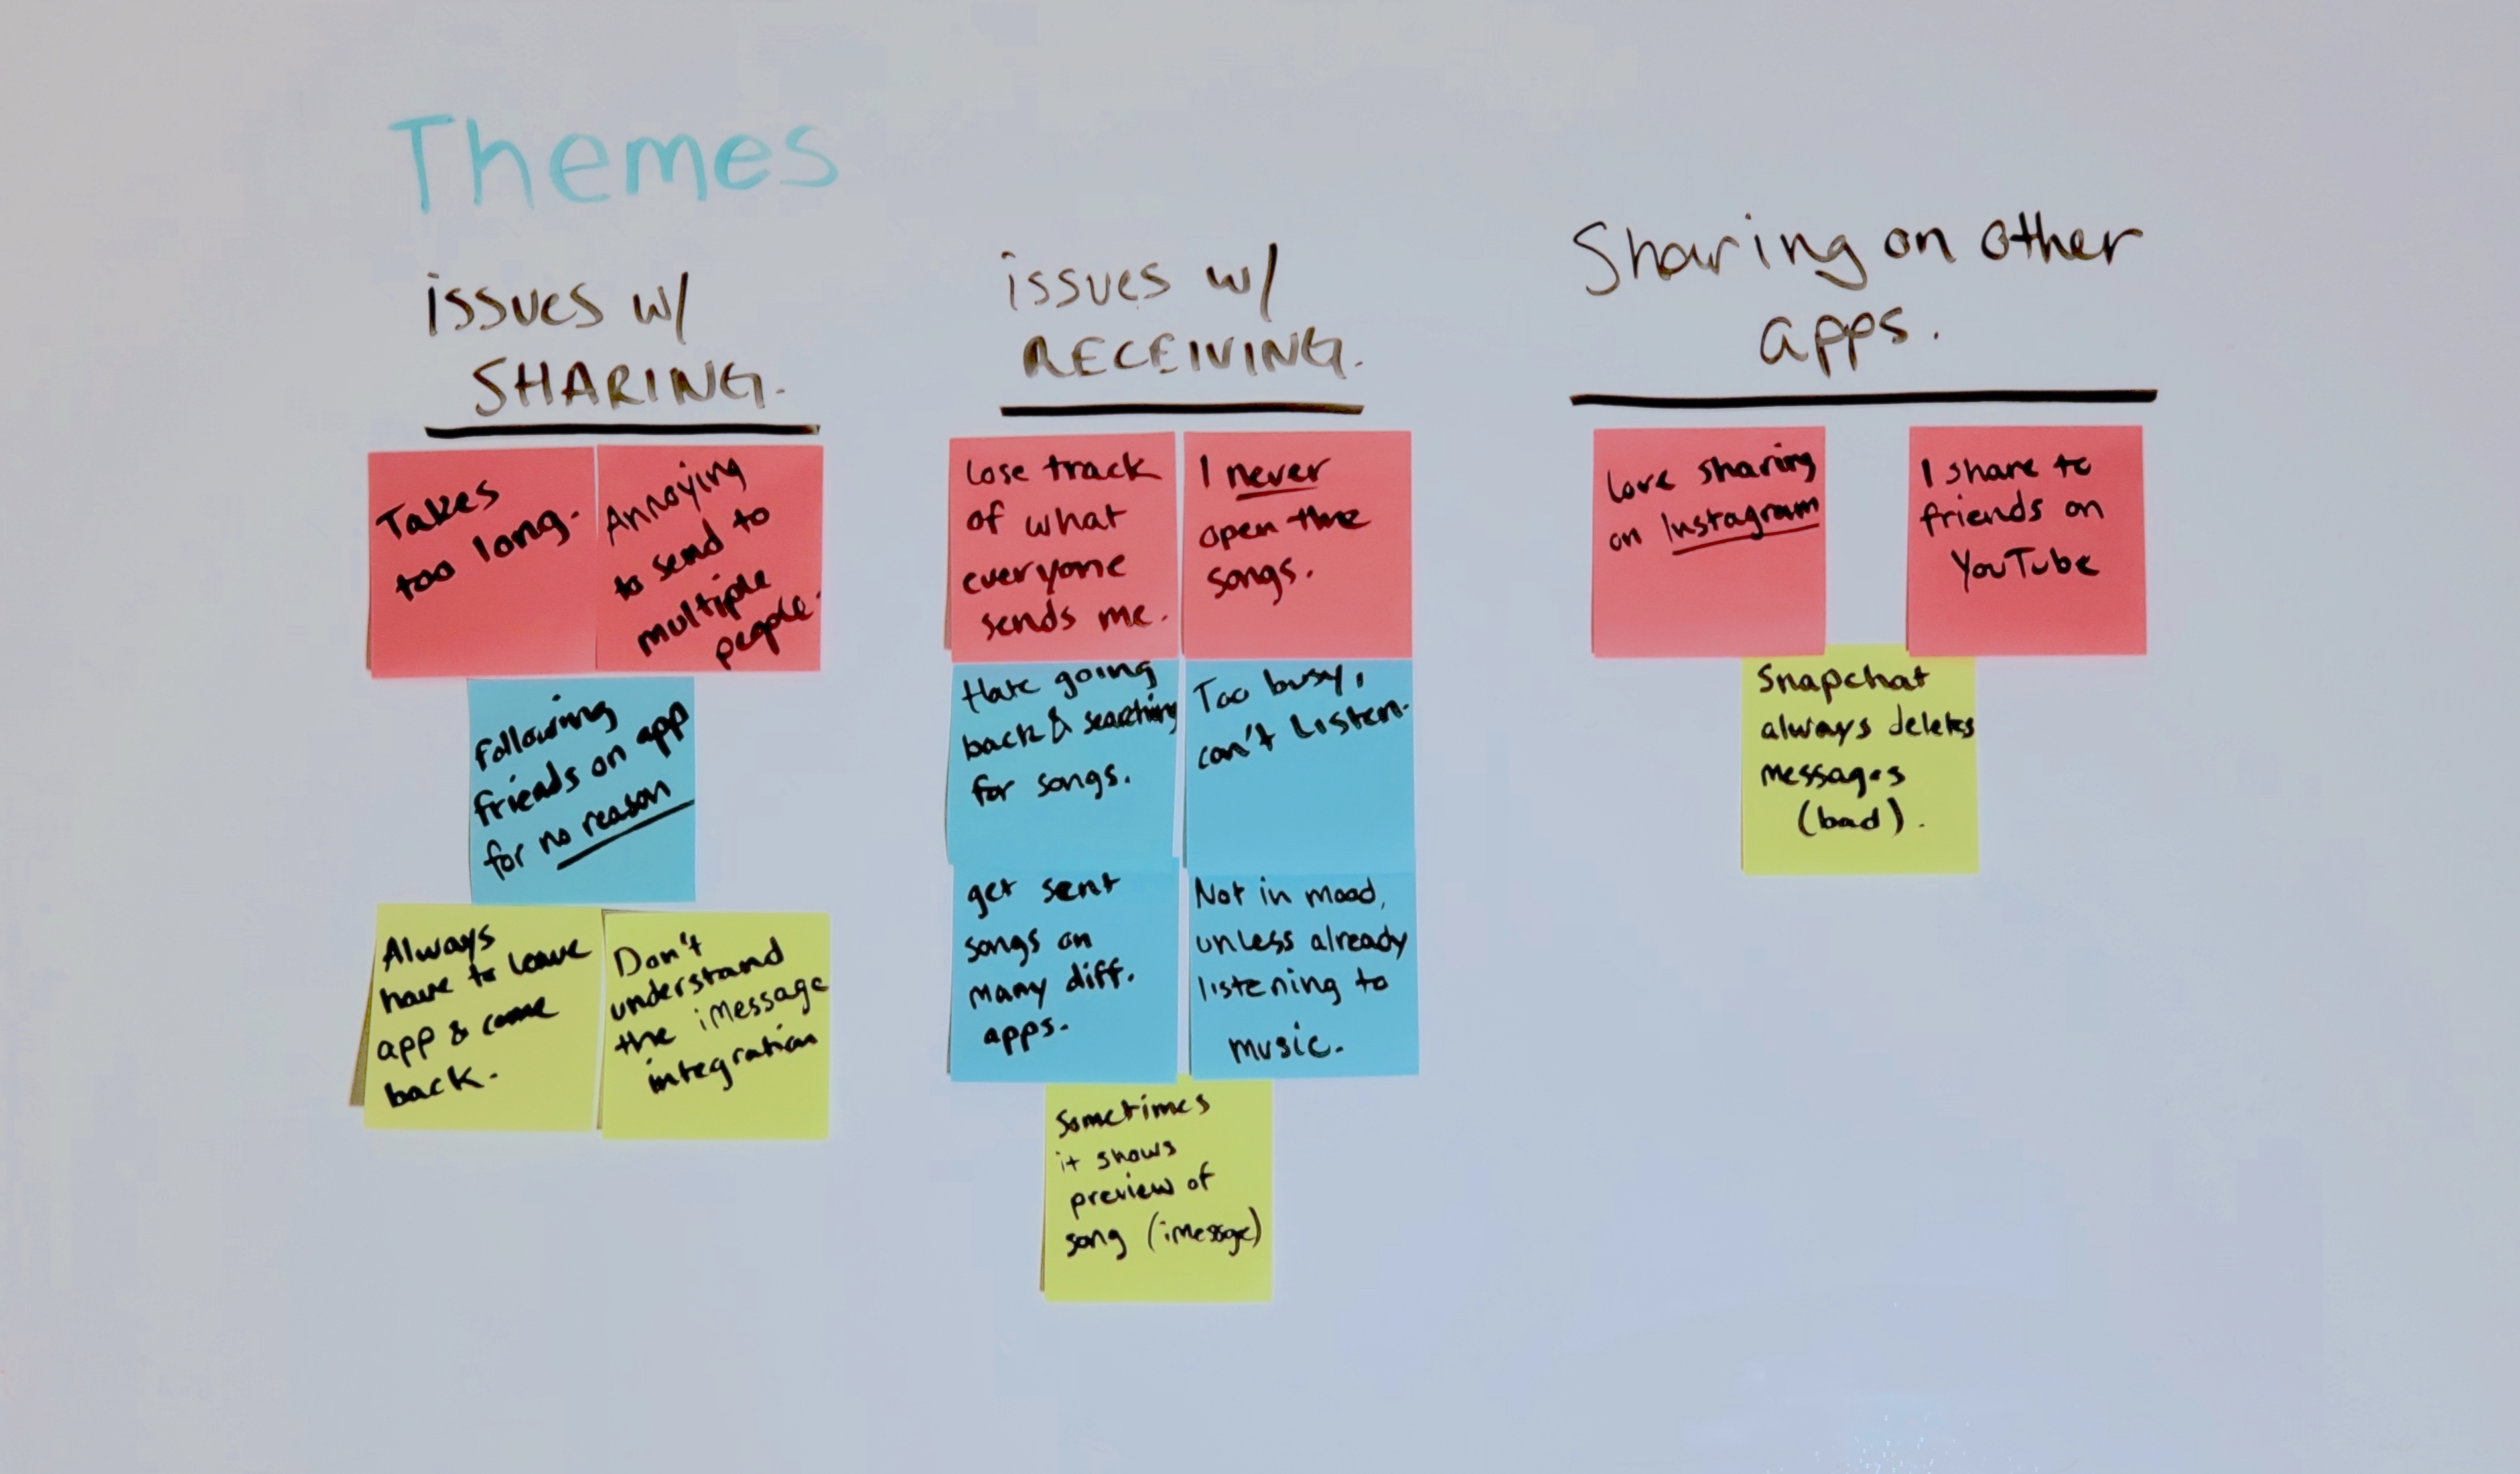 Themes
issues w/
SHARING.
Takes
too long.
Annoying
to send to
multiple
people.
Following
friends on app
for no reason
Always
have to leave
app & come
back.
Don't
understand
the iMessage
integration
issues w/
RECEIVING.
Lose track
of what
everyone
sends me.
I never
open the
songs.
Hate going
back & searching
for songs.
Too busy,
can't listen.
get sent
songs on
many diff.
apps.
Not in mood,
unless already
listening to
music.
Sometimes
it shows
preview of
song (iMessage)
Sharing on other
apps.
Love sharing
on Instagram
I share to
friends on
YouTube
Snapchat
always deletes
messages
(bad).